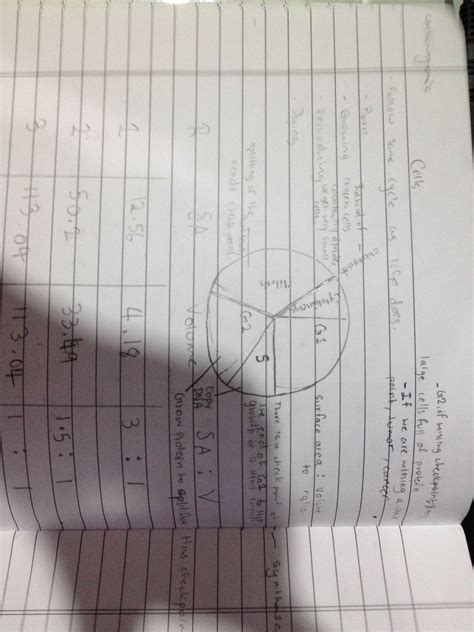 Cells
- Follow same cycle as life does.
- Born
- Growing
Reproducing
- Dying
Instead of
cancer cells
continually divide,
we get very small
cells
Checkpoint
splitting of the
needs check point
- G2, if missing checkpoint
large cells full of protein
- If we are missing a
point, tumor, cancer
Surface area : volume
to ratio
There is a check point at
the end of G1 to the
synthesis
Cytokinesis
G1
S
G2
Mitosis
copy
DNA
Grow protein to split
Has checkpoint
R SA Volume SA : V
1 12.56 4.18 3 : 1
2 50.2 33.49 1.5 : 1
3 113.04 113.04 1 : 1